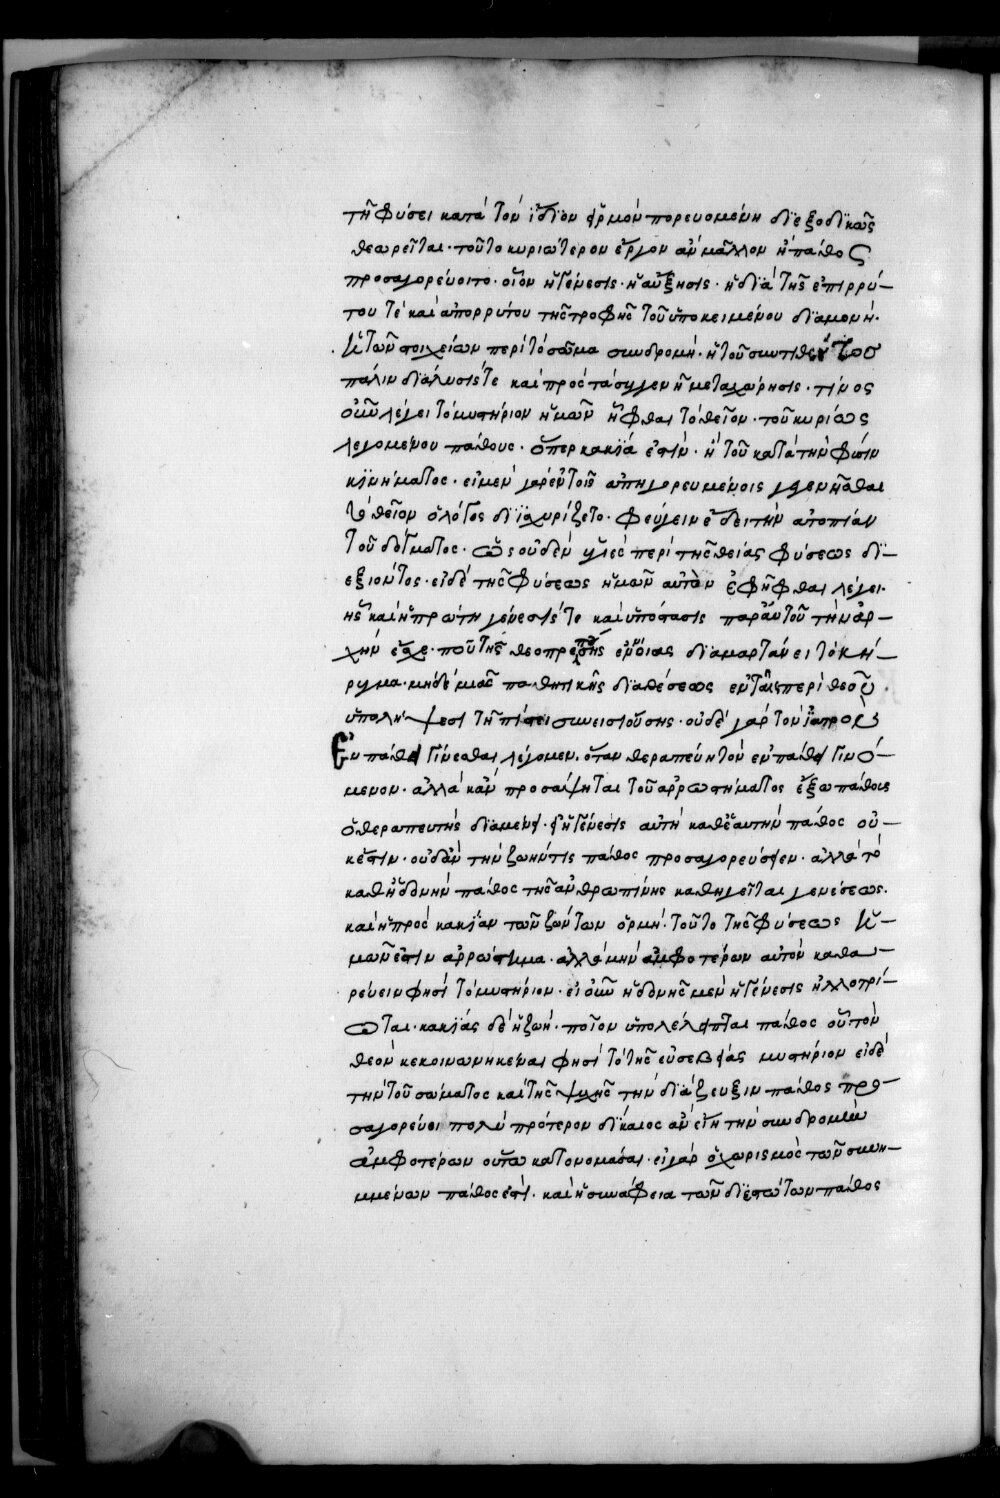 τῇ φύσει κατὰ τὸν ἴδιον εἱρμὸν πορευομένῃ διεξοδικῶς
θεωρεῖται· τοῦτο κυριώτερον ἔργον ἂν μᾶλλον ἢ πάθος
προσαγορεύοιτο· οἷον ἡ γένεσις· ἡ αὔξησις· ἡ διὰ τῆς ἐπιρρύ-
του τὲ καὶ ἀπορρύτου τῆς τροφῆς τοῦ ὑποκειμένου διαμονή·
ἡ τῶν στοιχείων περὶ τὸ σῶμα συνδρομή· ἡ τοῦ συντιθέντος
πάλιν διάλυσίς τε καὶ πρὸς τὰ συγγενῆ μεταχώρησις· τίνος
οὖν λέγει τὸ μυστήριον ἡμῶν ἧφθαι τὸ θεῖον· τοῦ κυρίως
λεγομένου πάθους· ὅπερ κακία ἐστὶν· ἢ τοῦ κατὰ τὴν φύσιν
κινήματος· εἰ μὲν γὰρ ἐν τοῖς ἀπηγορευμένοις γεγενῆσθαι
τὸ θεῖον ὁ λόγος διϊσχυρίζετο· φεύγειν ἔδει τὴν ἀτοπίαν
τοῦ δόγματος· ὡς οὐδὲν ὑγιὲς περὶ τῆς θείας φύσεως δι-
εξιόντος· εἰ δὲ τῆς φύσεως ἡμῶν αὐτὸν ἐφῆφθαι λέγει·
ἧς καὶ ἡ πρώτη γένεσίς τε καὶ ὑπόστασις παρ' αὐτοῦ τὴν ἀρ-
χὴν ἔσχε· ποῦ τῆς θεοπρεποῦς ἐννοίας διαμαρτάνει τὸ κή-
ρυγμα· μηδεμιᾶς παθητικῆς διαθέσεως ἐν ταῖς περὶ θεοῦ
ὑπολήψεσι τῇ πίστει συνεισιούσης· οὐδὲ γὰρ τὸν ἰατρὸν
ἐν πάθει γίνεσθαι λέγομεν· ὅταν θεραπεύῃ τὸν ἐν πάθει γινό-
μενον· ἀλλὰ κἂν προσάψηται τοῦ ἀρρωστήματος ἔξω πάθους
ὁ θεραπευτὴς διαμένει· εἰ ἡ γένεσις αὐτὴ καθ' ἑαυτὴν πάθος οὐ-
κ ἔστιν· οὐδ' ἂν τὴν ζωήν τις πάθος προσαγορεύσειεν· ἀλλὰ τὸ
καθ' ἡδονὴν πάθος τῆς ἀνθρωπίνης καθηγεῖται γενέσεως·
καὶ ἡ πρὸς κακίαν τῶν ζώντων ὁρμή· τοῦτο τῆς φύσεως ἡ-
μῶν ἐστιν ἀρρώστημα· ἀλλὰ μὴν ἀμφοτέρων αὐτὸν καθα-
ρεύειν φησὶ τὸ μυστήριον· εἰ οὖν ἡδονῆς μὲν ἡ γένεσις ἠλλοτρί-
ωται· κακίας δὲ ἡ ζωή· ποῖον ὑπολείπεται πάθος οὗ τὸν
θεὸν κεκοινωνηκέναι φησὶ τὸ τῆς εὐσεβείας μυστήριον εἰ δὲ
τὴν τοῦ σώματος καὶ τῆς ψυχῆς τὴν διάζευξιν πάθος προ-
σαγορεύει πολὺ πρότερον δίκαιος ἂν εἴη τὴν συνδρομὴν
ἀμφοτέρων οὕτω κατονομάσαι· εἰ γὰρ ὁ χωρισμὸς τῶν συνη-
μμένων πάθος ἐστί· καὶ ἡ συνάφεια τῶν διεστώτων πάθος